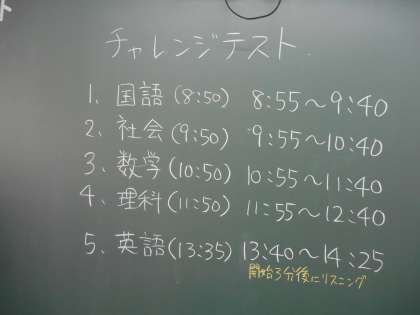 チャレンジテスト
1、国語(8:50) 8:55～9:40
2、社会(9:50) 9:55～10:40
3、数学(10:50) 10:55～11:40
4、理科(11:50) 11:55～12:40
5、英語(13:35) 13:40～14:25
開始3分後にリスニング